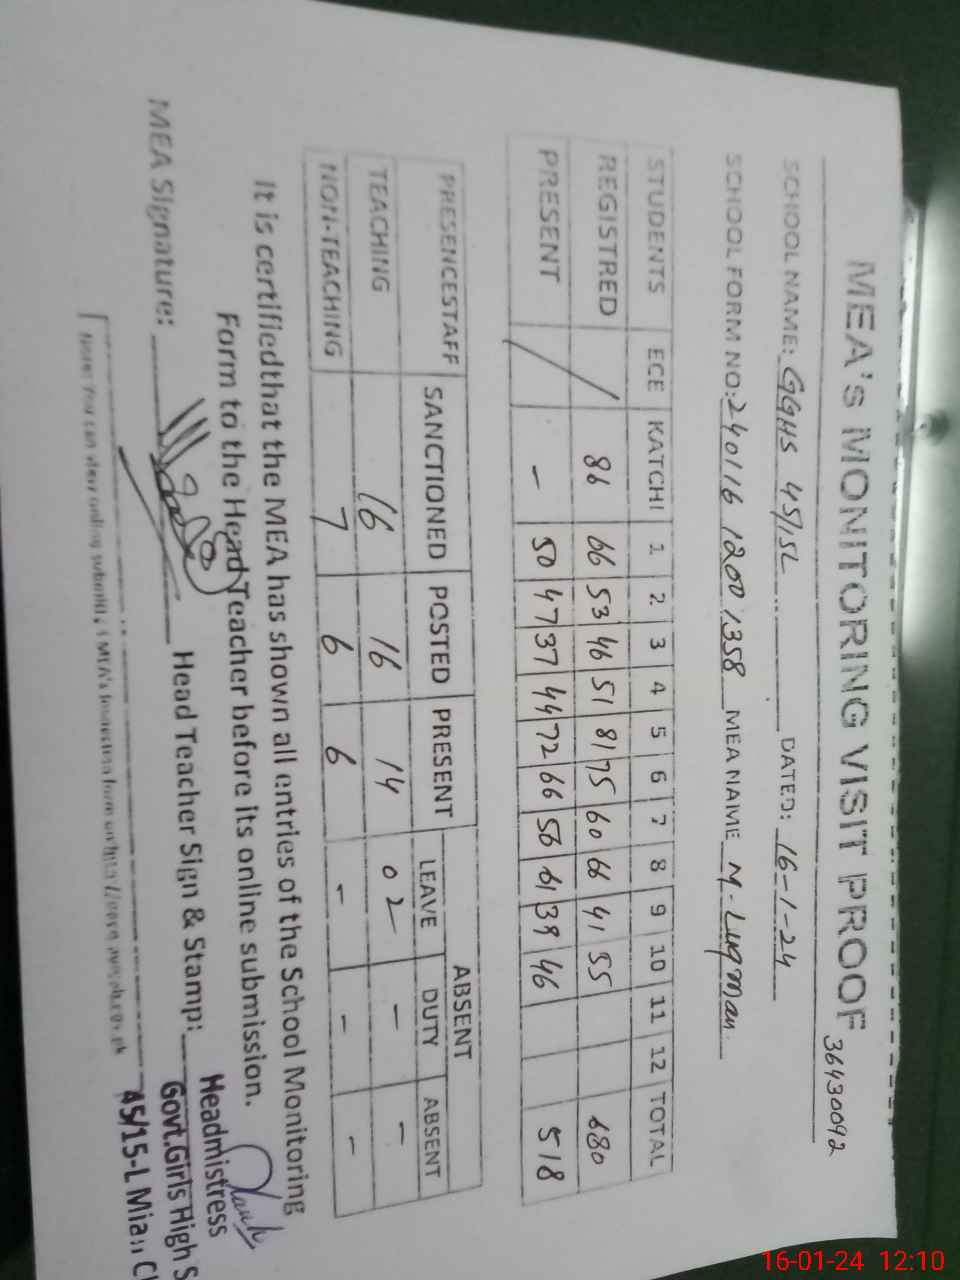 MEA's MONITORING VISIT PROOF
36430042
SCHOOL NAME: GGHS 45/15L DATED: 16-1-24
SCHOOL FORM NO: 240116 1200 1358 MEA NAME M. Luqman
STUDENTS ECE KATCHI 1 2 3 4 5 6 7 8 9 10 11 12 TOTAL
REGISTRED / 86 66 53 46 51 81 75 60 66 41 55 680
PRESENT / - 50 47 37 44 72 66 56 61 39 46 518
PRESENCESTAFF SANCTIONED POSTED PRESENT ABSENT
LEAVE DUTY ABSENT
TEACHING 16 16 14 02 - -
NON-TEACHING 7 6 6 - - -
It is certifiedthat the MEA has shown all entries of the School Monitoring
Form to the Head Teacher before its online submission.
MEA Signature: Head Teacher Sign & Stamp:
Headmistress
Govt.Girls High S
45/15-L Mian Ch
Note: You can view online
16-01-24 12:10